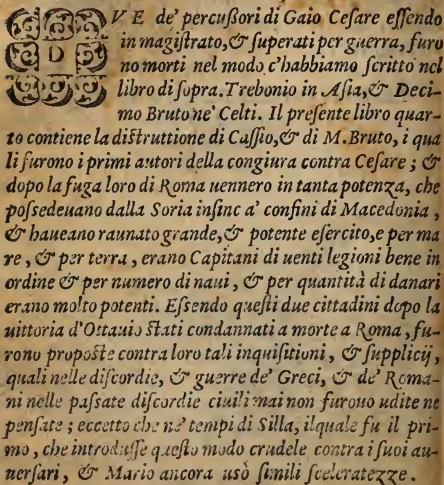 DVE de' percußori di Gaio Cesare eſſendo
in magiſtrato, & ſuperati per guerra, furo
no morti nel modo c'habbiamo ſcritto nel
libro di ſopra. Trebonio in Aſia, & Deci-
mo Bruto ne' Celti. Il preſente libro quar-
to contiene la diſtruttione di Caſſio, & di M. Bruto, i qua
li furono i primi autori della congiura contra Ceſare; &
dopo la fuga loro di Roma uennero in tanta potenza, che
poſſedeuano dalla Soria inſinc a' confini di Macedonia,
& haueano raunato grande, & potente eſercito, e per ma
re, & per terra, erano Capitani di uenti legioni bene in
ordine & per numero di naui, & per quantità di danari
erano molto potenti. Eſſendo queſti due cittadini dopo la
uittoria d'Ottauio ſtati condannati a morte a Roma, fu-
rono propoſte contra loro tali inquiſitioni, & ſupplicij,
quali nelle diſcordie, & guerre de' Greci, & de' Roma-
ni nelle paſſate diſcordie ciuili mai non furouo udite ne
penſate; eccetto che ne' tempi di Silla, ilquale fu il pri-
mo, che introduſſe queſto modo crudele contra i ſuoi au-
uerſari, & Mario ancora usò ſimili ſceleratezze.